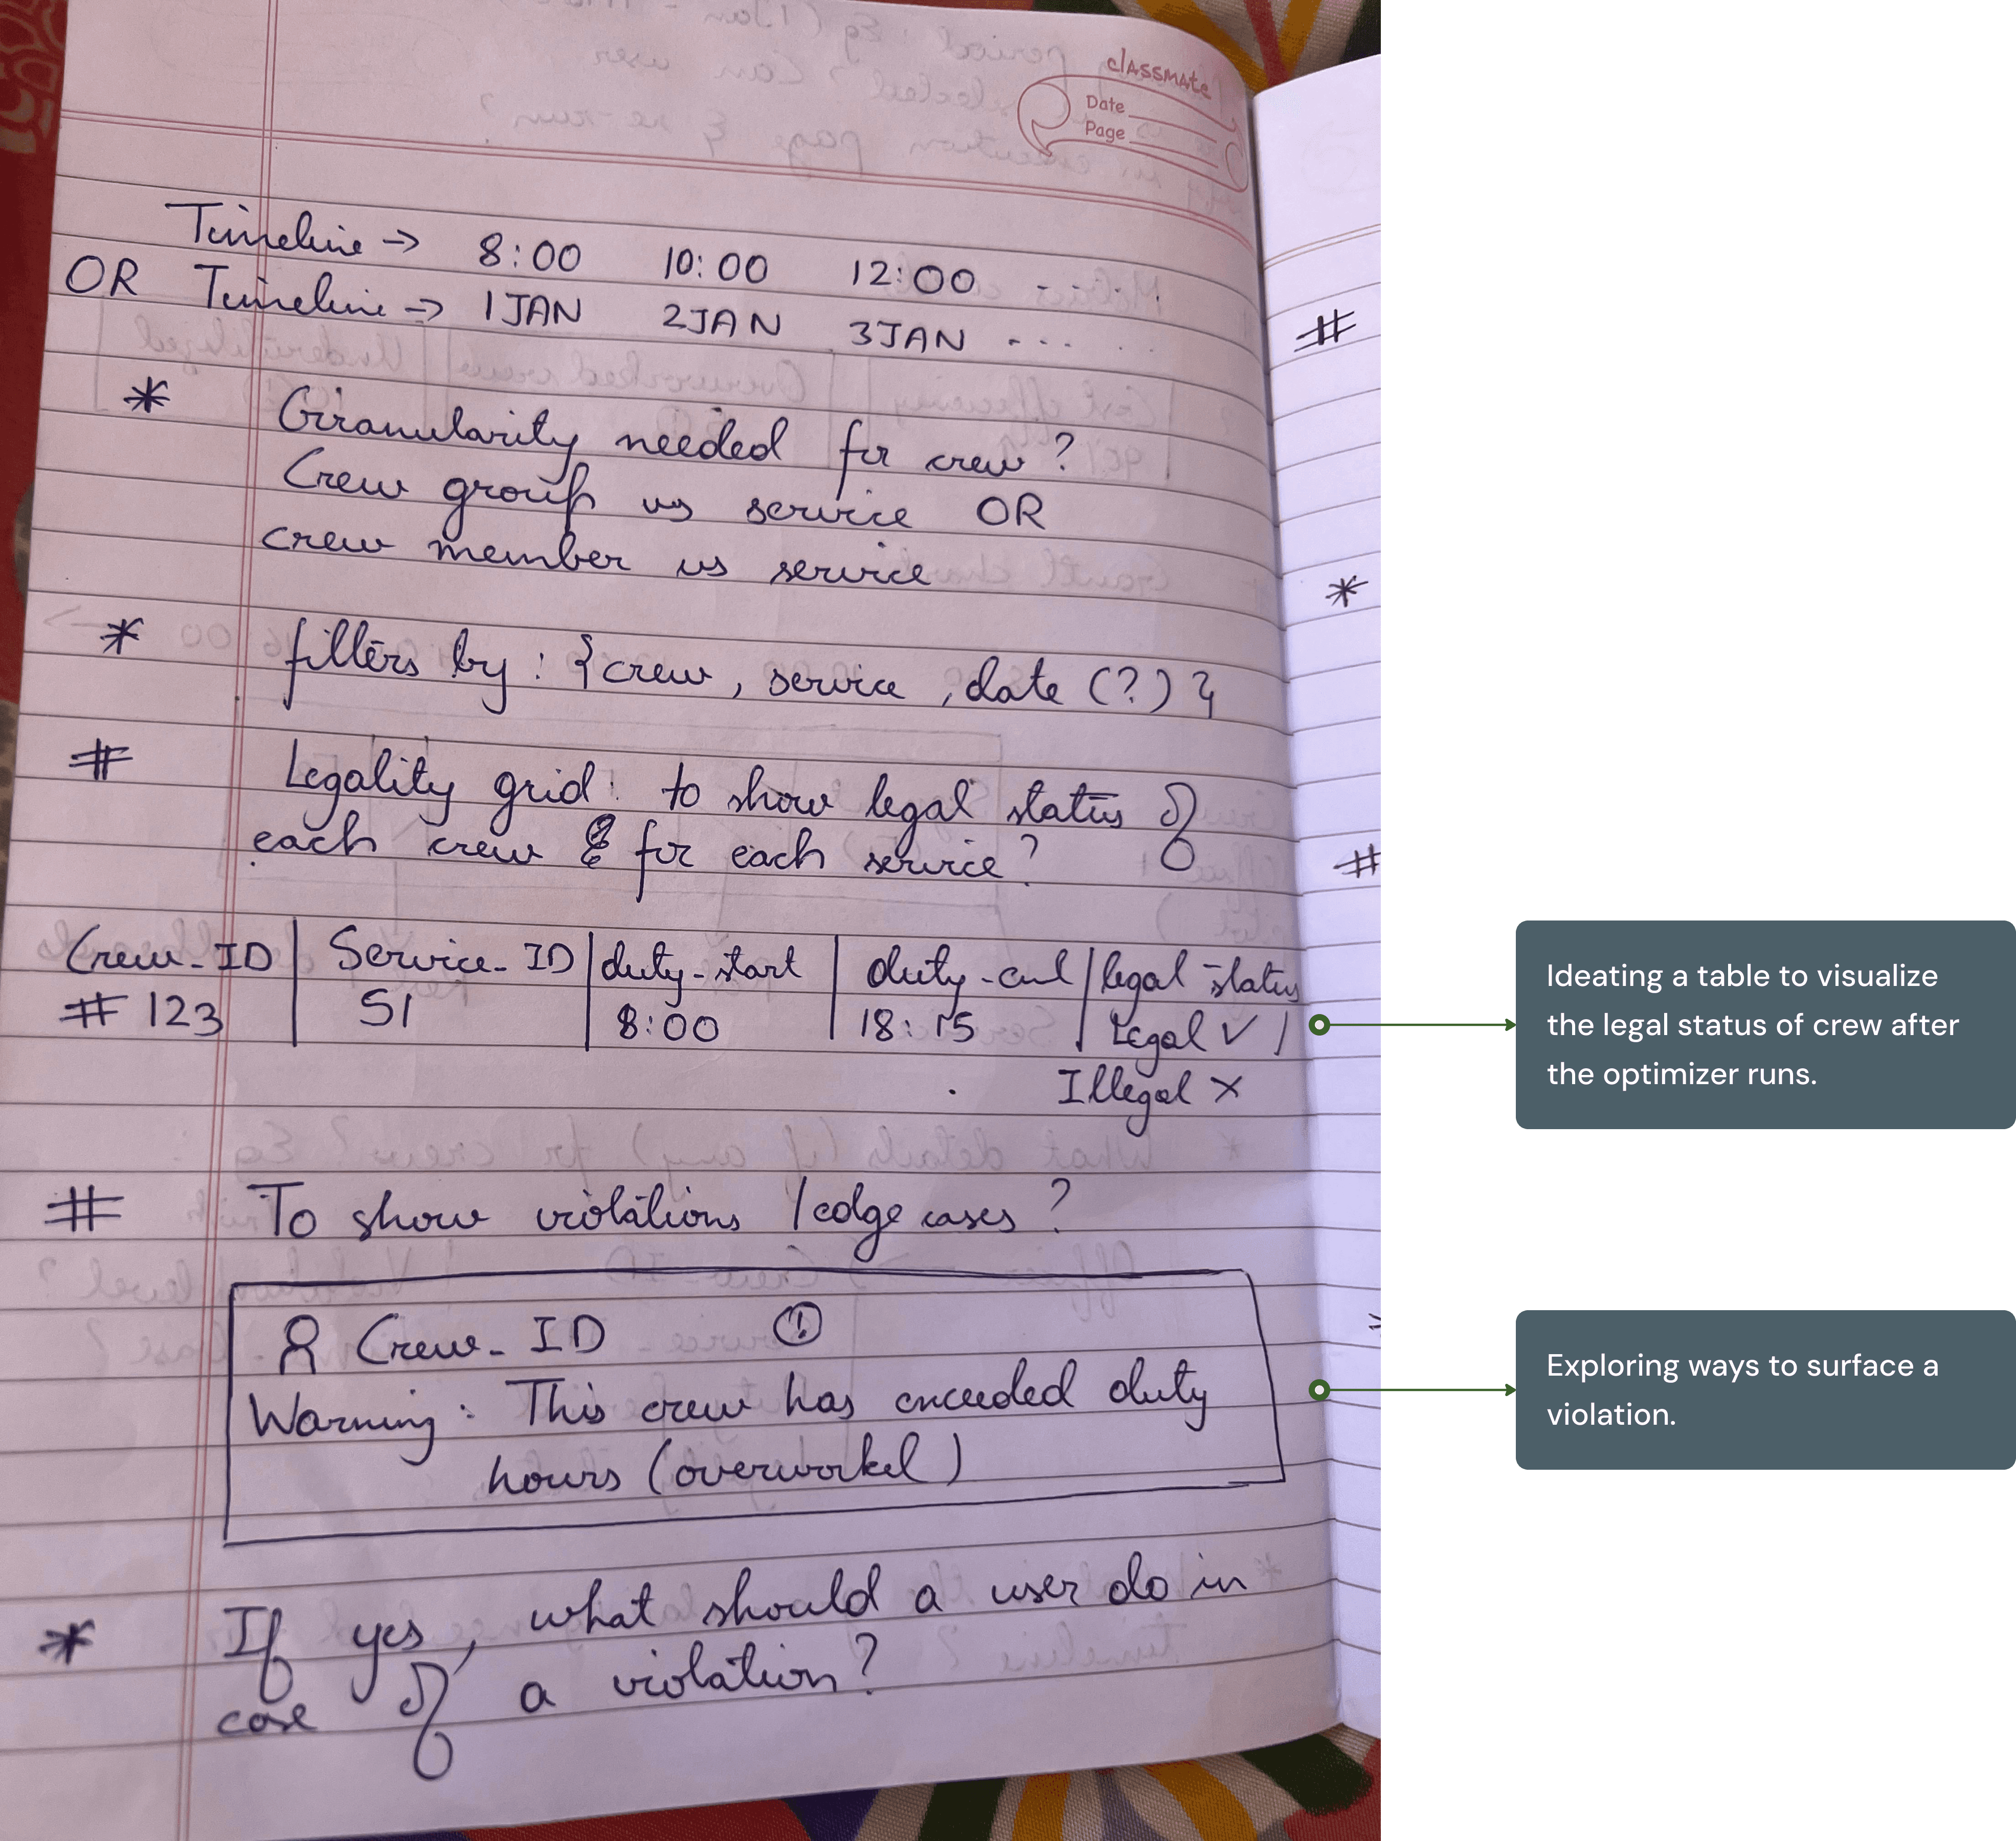 classmate
Date
Page
Timeline → 8:00 10:00 12:00 ....
OR Timeline → 1JAN 2JAN 3JAN ....
* Granularity needed for crew?
Crew group vs service OR
crew member vs service
* filters by : {crew, service, date (?)}
# Legality grid: to show legal status of
each crew & for each service?
Crew_ID | Service_ID | duty_start | duty_end | legal status
# 123 | S1 | 8:00 | 18:15 | Legal ✓ /
Illegal ×
# To show violations / edge cases?
Crew_ID !
Warning: This crew has exceeded duty
hours (overworked)
* If yes, what should a user do in
case of a violation?
#
*
#
Ideating a table to visualize
the legal status of crew after
the optimizer runs.
Exploring ways to surface a
violation.